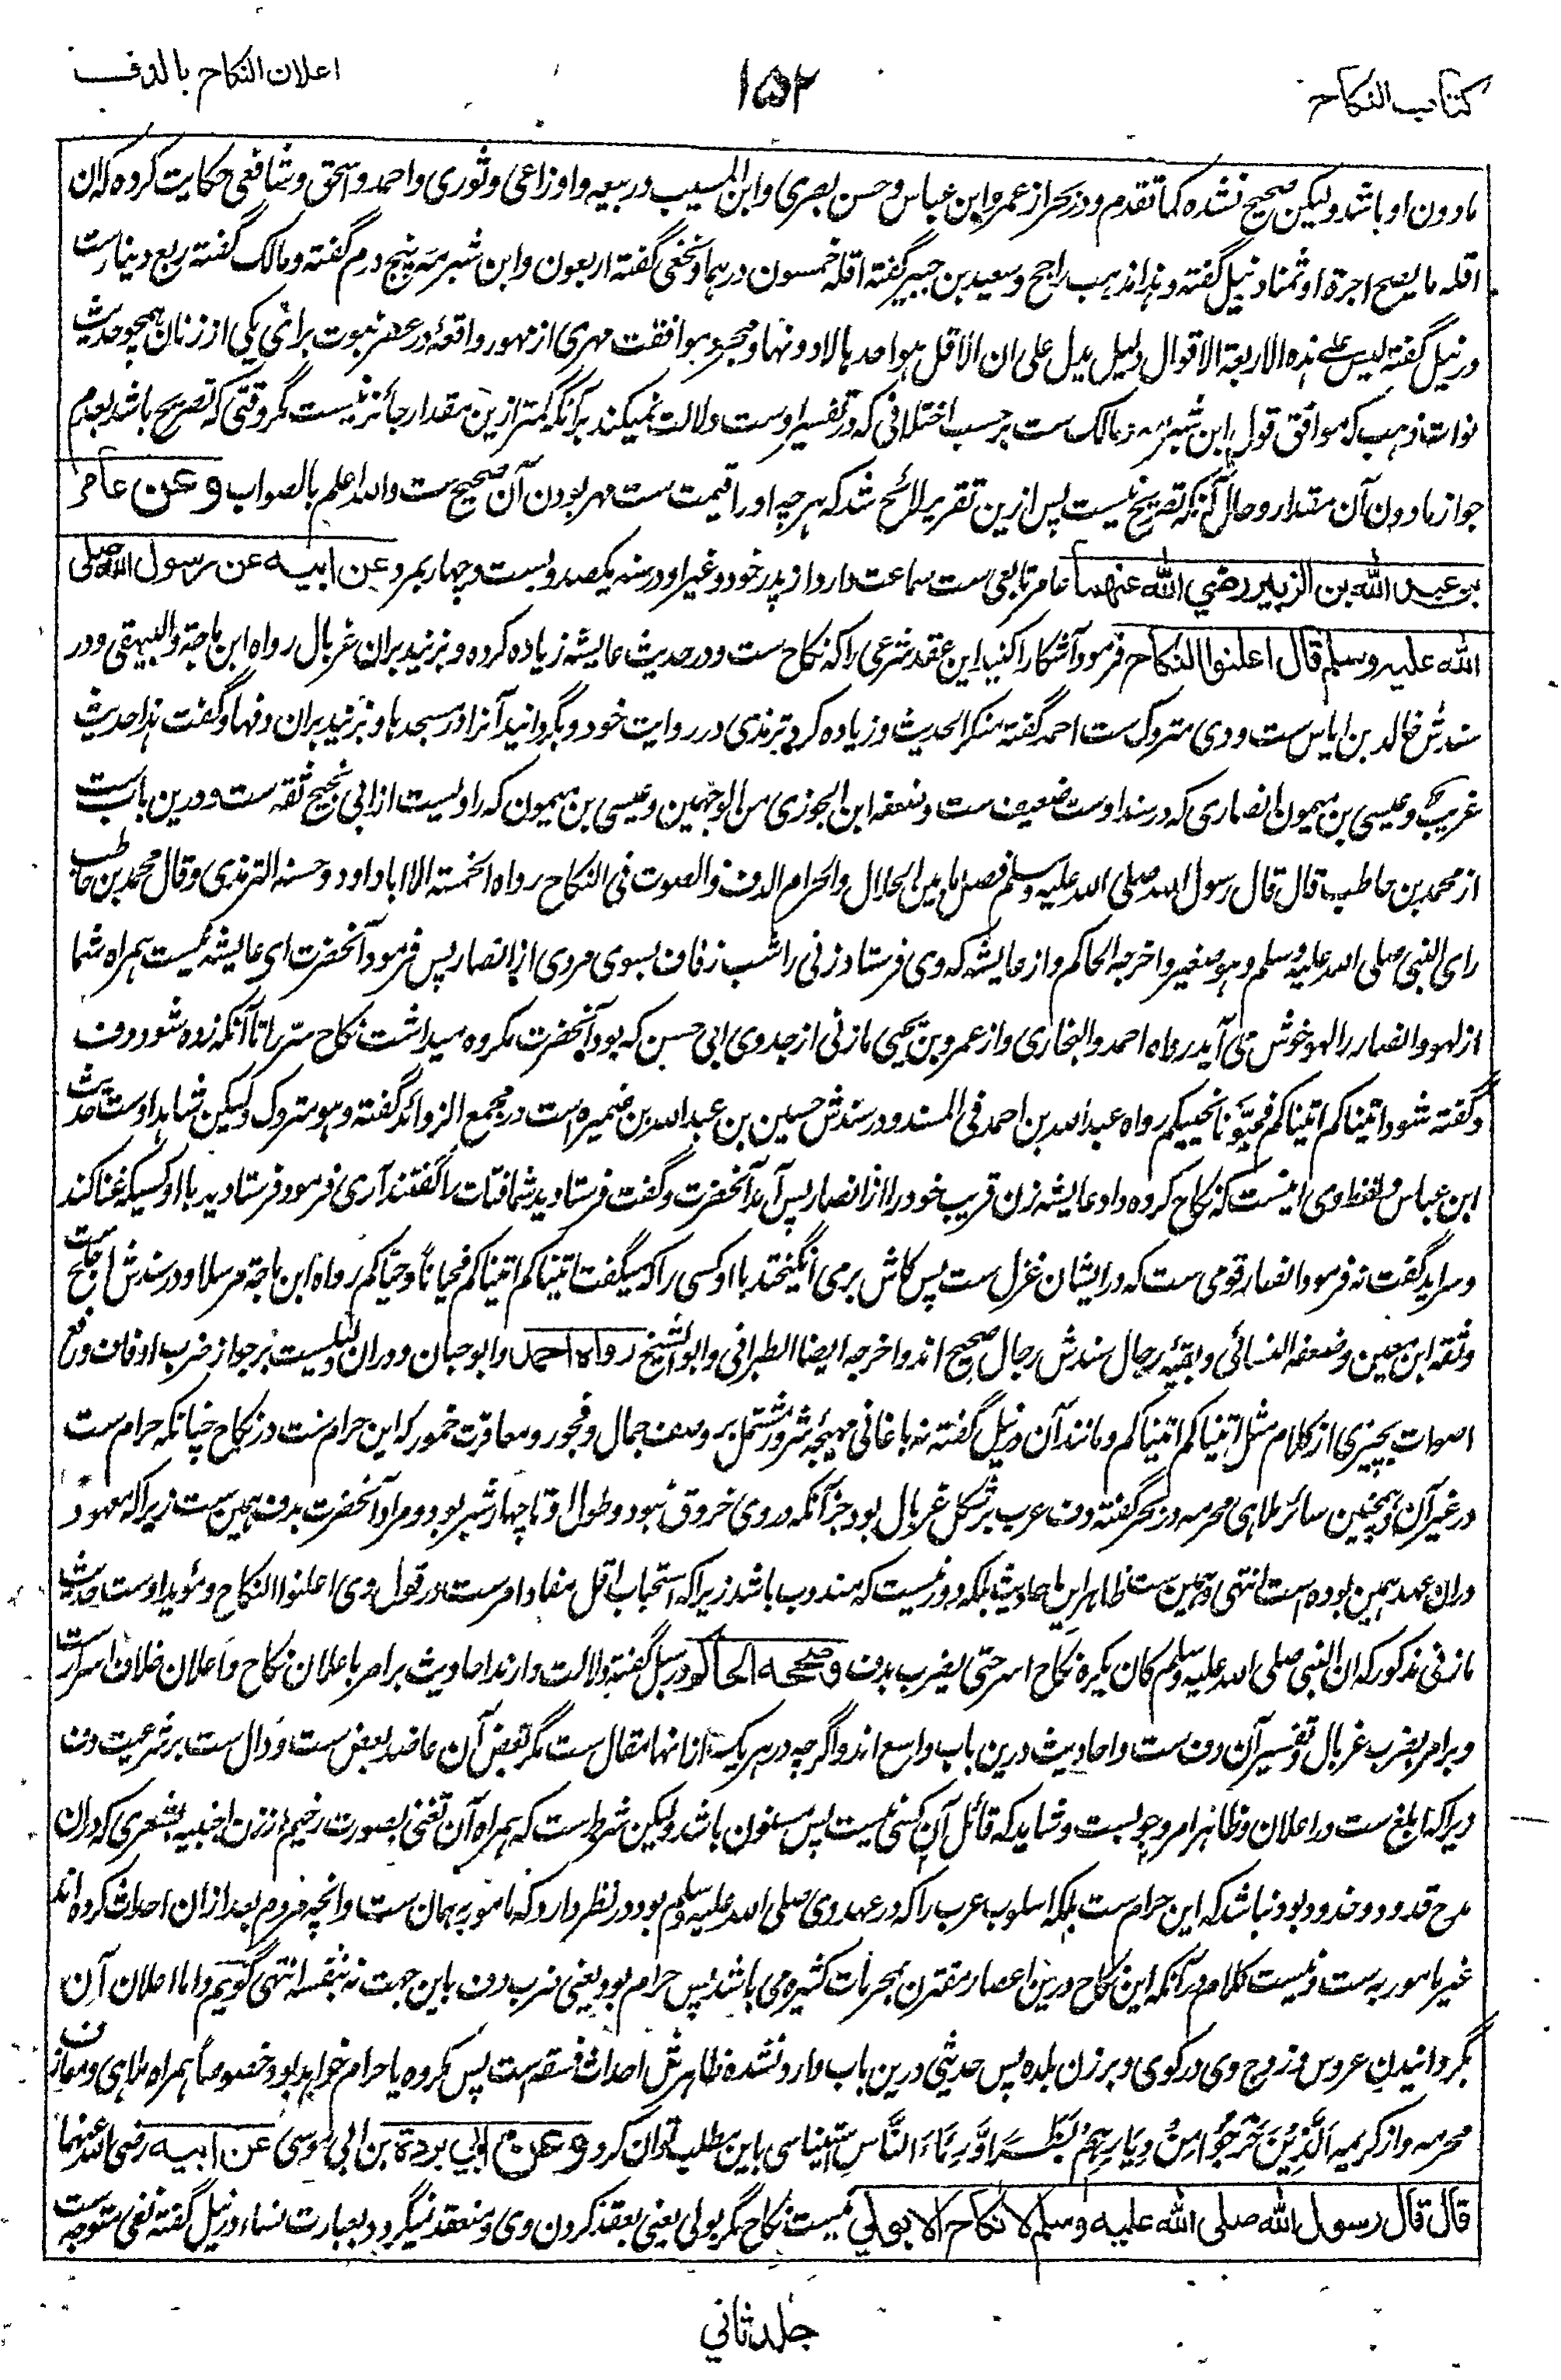 کتاب النکاح
۱۵۲
اعلان النکاح بالدف
مادون او باشد ولیکن صحیح نشده کما تقدم و در بحر از عمر و ابن عباس و حسن بصری و ابن المسیب و ربیعه و اوزاعی و ثوری و احمد و اسحق و شافعی حکایت کرده که ان
اقله ما یصح اجرة او ثمنا در نیل گفته و هذا مذهب راجح و سعید بن جبیر گفته اقله خمسون درهما و نخعی گفته اربعون و ابن شبرمه پنج درم گفته و مالک گفته ربع دینارست
در نیل گفته لیس علی هذه الاربعة الاقوال دلیل یدل علی ان الاقل هو احدها لا دونها و مجرد موافقت مهری از مهور واقعه در عصر نبوت برای یکی از زنان همچو حدیث
نواة ذهب که موافق قول ابن شبرمه و مالک ست برحسب اختلافی که در تفسیر اوست دلالت نمیکند برآنکه کمتر ازین مقدار جائز نیست مگر وقتی که تصریح باشد بعدم
جواز مادون آن مقدار و حال آنکه تصریح نیست پس ازین تقریر لائح شد که هرچه او را قیمت ست مهر بودن آن صحیح ست والله اعلم بالصواب وعن عامر
بن عبد الله بن الزبیر رضي الله عنهما عامر تابعی ست سماعت دارد از پدر خود و غیر او در سنه یکصد و بست و چهار بمرد عن ابیه عن رسول الله صلی
الله علیه وسلم قال اعلنوا النکاح فرمود آشکارا کنید این عقد شرعی را که نکاح ست و در حدیث عایشه زیاده کرده و بزنید بران غربال رواه ابن ماجة والبیهقی و در
سندش خالد بن ایاس ست و وی متروک ست احمد گفته منکر الحدیث و زیاده کرد ترمذی در روایت خود و بگردانید آنرا در مسجدها و بزنید بران دفها و گفت هذا حدیث
غریب و عیسی بن میمون انصاری که در سند اوست ضعیف ست وضعفه ابن الجوزی من الوجهین و عیسی بن میمون که راویست از ابی نجیح ثقه ست و درین باب ست
از محمد بن حاطب قال قال رسول الله صلی الله علیه وسلم فصل ما بین الحلال والحرام الدف والصوت فی النکاح رواه الخمسة الا ابا داود وحسنه الترمذی وقال محمد بن حاطب
رای النبی صلی الله علیه وسلم وهو صغیر واخرجه الحاکم و از عایشه که وی فرستاد زنی را شب زفاف بسوی مردی از انصار پس فرمود آنحضرت ای عایشه نیست همراه شما
از لهو و انصار را لهو خوش می آید رواه احمد والبخاری و از عمرو بن یحیی مازنی از جد وی ابی حسن که بود آنحضرت مکروه میداشت نکاح سر را تا آنکه زده شود دف
و گفته شود اتیناکم اتیناکم فحیونا نحییکم رواه عبدالله بن احمد فی المسند و در سندش حسین بن عبدالله بن ضمیره است در مجمع الزوائد گفته وهو متروک ولیکن شاهد اوست حدیث
ابن عباس و لفظ وی اینست که نکاح کرده داد عایشه زن قریب خود را از انصار پس آمد آنحضرت و گفت فرستادید شما فتات را گفتند آری فرمود فرستادید با او کسیکه غنا کند
و سراید گفت نه فرمود انصار قومی ست که در ایشان غزل ست پس کاش برمی انگیختید با او کسی را که میگفت اتیناکم اتیناکم فحیانا وحیاکم رواه ابن ماجة مرسلا و در سندش اجلح ست
وثقه ابن معین وضعفه النسائی و بقیه رجال سندش رجال صحیح اند واخرجه ایضا الطبرانی وابو الشیخ رواه احمد وابو حبان و دران دلیلست بر جواز ضرب ادفاف و رفع
اصوات بچیزی از کلام مثل اتیناکم اتیناکم و مانند آن در نیل گفته نه باغانی مهیجه شرور مشتمل بر وصف جمال و فجور و معاقرت خمور که این حرام ست در نکاح چنانکه حرام ست
در غیر آن و همچنین سائر ملاهی محرمه و در بحر گفته دف عرب بر شکل غربال بود جز آنکه در وی خروق نبود و طول او تا چهار شبر بود و مراد آنحضرت بدف همین ست زیرا که معهود
دران عهد همین بوده ست انتهی و همین ست ظاهر این احادیث بلکه دور نیست که مندوب باشد زیرا که استحباب اقل مفاد امرست در قول وی اعلنوا النکاح و مؤید اوست حدیث
مازنی مذکور که ان النبی صلی الله علیه وسلم کان یکره نکاح السر حتی یضرب بدف وصححه الحاکم در سبل گفته دلالت دارند احادیث بر امر باعلان نکاح و اعلان خلاف اسرارست
و بر امر بضرب غربال و تفسیر آن دف ست و احادیث درین باب واسع اند و اگرچه در هر یک ازانها مقال ست مگر بعض آن عاضد بعض ست و دال ست بر شرعیت دف
زیرا که ابلغ ست در اعلان و ظاهر امر وجوبست و شاید که قائل آن کسی نیست پس مسنون باشد ولیکن شرط ست که همراه آن تغنی بصوت رخیم از زن اجنبیه بشعری که دران
مدح قدود و خدود بود نباشد که این حرام ست بلکه اسلوب عرب را که در عهد وی صلی الله علیه وسلم بود در نظر دارد که مامور به همان ست و انچه مردم بعد ازان احداث کرده اند
غیر مامور به ست و نیست کلام درآنکه این نکاح درین اعصار مقترن بمحرمات کثیره می باشد پس حرام بود یعنی ضرب دف باین جهت نه بنفسه انتهی گویم و اما اعلان آن
بگردانیدن عروس و زوج وی در کوی و برزن بلده پس حدیثی درین باب وارد نشده ظاهرش احداث فسقه ست پس مکروه یا حرام خواهد بود خصوصاً همراه ملاهی و معازف
محرمه و از کریمه الَّذِیْنَ خَرَجُوْا مِنْ دِیَارِهِمْ بَطَرًا وَّرِئَاءَ النَّاسِ استیناسی باین مطلب توان کرد وعن ابي بردة بن ابي موسی عن ابیه رضی الله عنهما
قال قال رسول الله صلی الله علیه وسلم لا نکاح الا بولي نیست نکاح مگر بولی یعنی بعقد کردن وی و منعقد نمیگردد بعبارت نساء در نیل گفته نفی متوجه ست
جلد ثاني